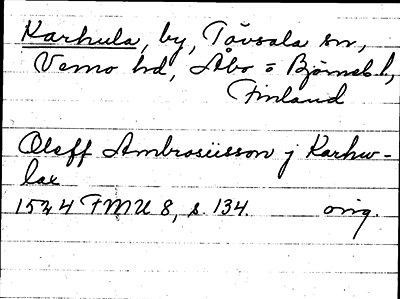 Karhula, by, Tövsala sn,
Vemo hd, Åbo o Björneb. l,
Finland
Oleff Ambrosiisson j Karhu-
lax
1534 FMU 8, s. 134. orig.